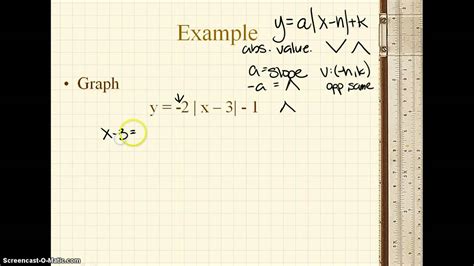 Example
y=a|x-h|+k
abs. value. ∨ ∧
a=slope v:(-h,k)
-a = ∧ opp same
• Graph
y = -2 | x – 3| - 1 ∧
x-3=
Screencast-O-Matic.com